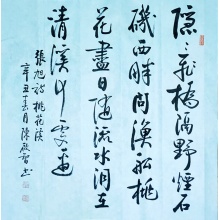 隱隱飛橋隔野煙石
磯西畔問漁船桃
花盡日隨流水洞在
清溪何處邊
張旭詩桃花溪
辛丑 月陳 智書